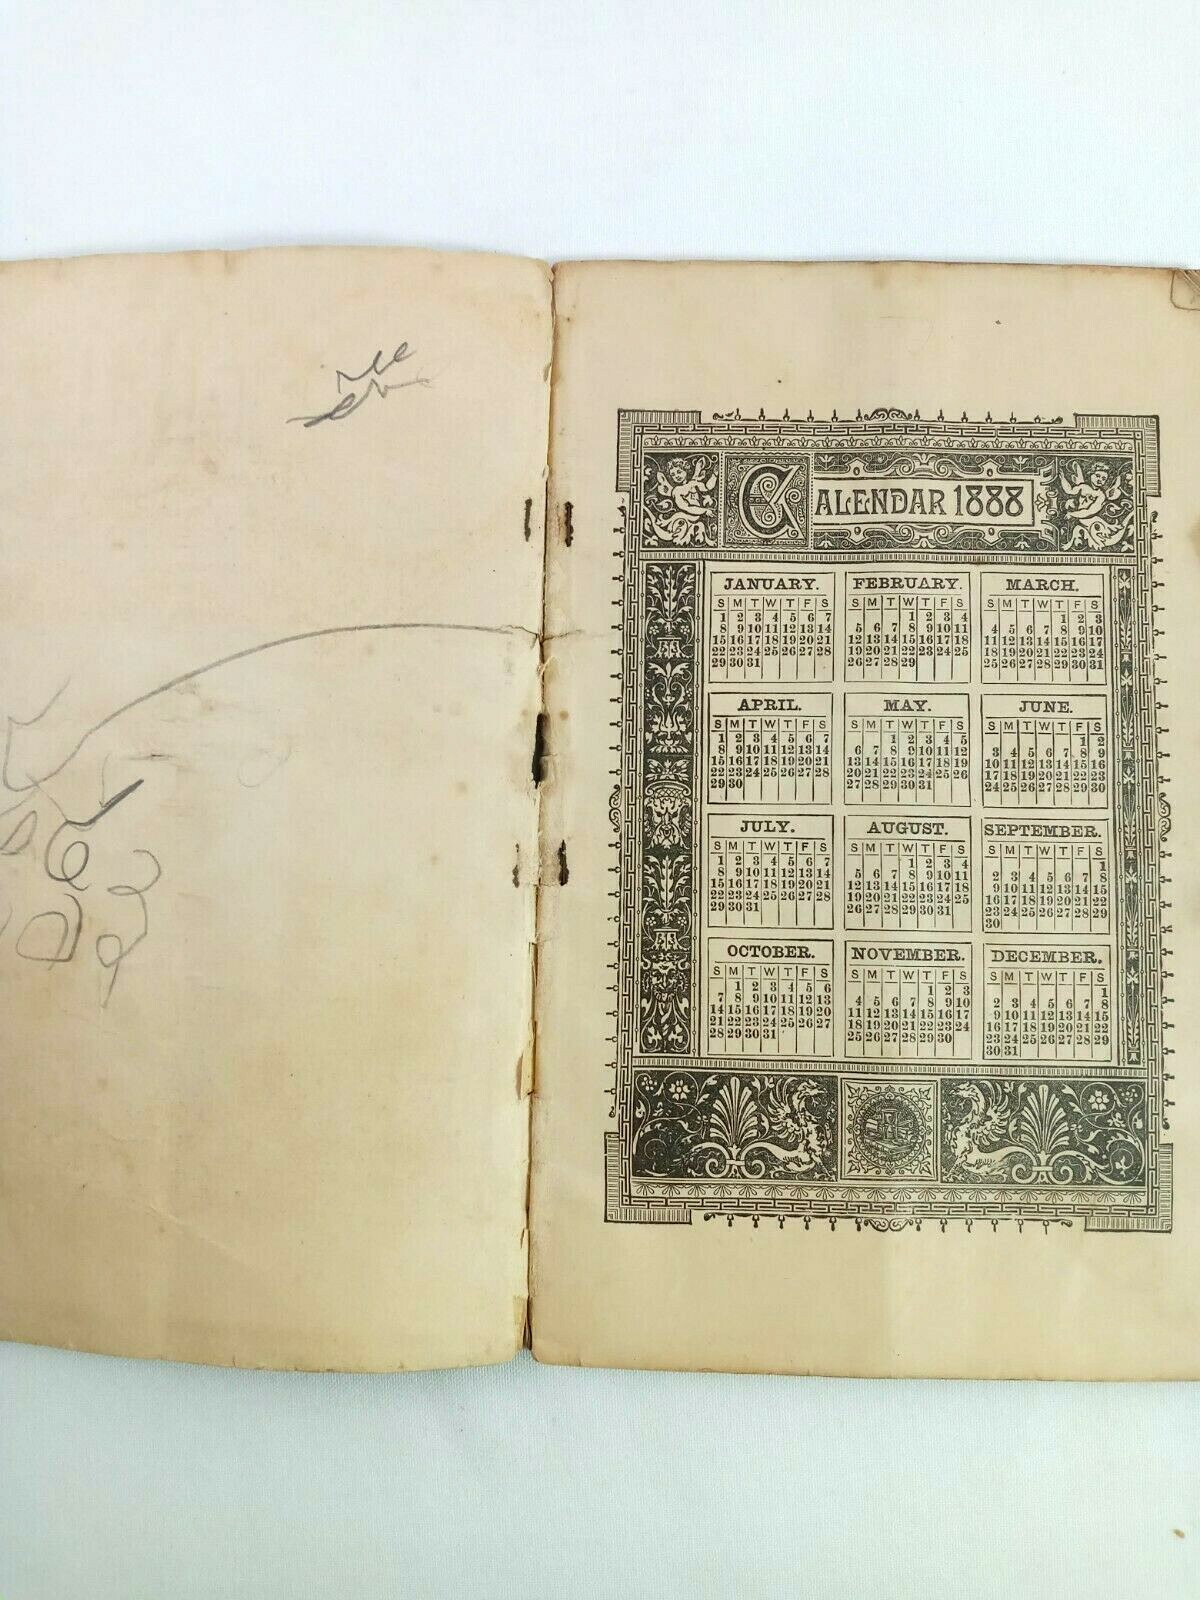 CALENDAR 1888
JANUARY. FEBRUARY. MARCH.
S M T W T F S S M T W T F S S M T W T F S
1 2 3 4 5 6 7 1 2 3 4 1 2 3
8 9 10 11 12 13 14 5 6 7 8 9 10 11 4 5 6 7 8 9 10
15 16 17 18 19 20 21 12 13 14 15 16 17 18 11 12 13 14 15 16 17
22 23 24 25 26 27 28 19 20 21 22 23 24 25 18 19 20 21 22 23 24
29 30 31 26 27 28 29 25 26 27 28 29 30 31
APRIL. MAY. JUNE.
S M T W T F S S M T W T F S S M T W T F S
1 2 3 4 5 6 7 1 2 3 4 5 1 2
8 9 10 11 12 13 14 6 7 8 9 10 11 12 3 4 5 6 7 8 9
15 16 17 18 19 20 21 13 14 15 16 17 18 19 10 11 12 13 14 15 16
22 23 24 25 26 27 28 20 21 22 23 24 25 26 17 18 19 20 21 22 23
29 30 27 28 29 30 31 24 25 26 27 28 29 30
JULY. AUGUST. SEPTEMBER.
S M T W T F S S M T W T F S S M T W T F S
1 2 3 4 5 6 7 1 2 3 4 1
8 9 10 11 12 13 14 5 6 7 8 9 10 11 2 3 4 5 6 7 8
15 16 17 18 19 20 21 12 13 14 15 16 17 18 9 10 11 12 13 14 15
22 23 24 25 26 27 28 19 20 21 22 23 24 25 16 17 18 19 20 21 22
29 30 31 26 27 28 29 30 31 23 24 25 26 27 28 29
30
OCTOBER. NOVEMBER. DECEMBER.
S M T W T F S S M T W T F S S M T W T F S
1 2 3 4 5 6 1 2 3 1
7 8 9 10 11 12 13 4 5 6 7 8 9 10 2 3 4 5 6 7 8
14 15 16 17 18 19 20 11 12 13 14 15 16 17 9 10 11 12 13 14 15
21 22 23 24 25 26 27 18 19 20 21 22 23 24 16 17 18 19 20 21 22
28 29 30 31 25 26 27 28 29 30 23 24 25 26 27 28 29
30 31